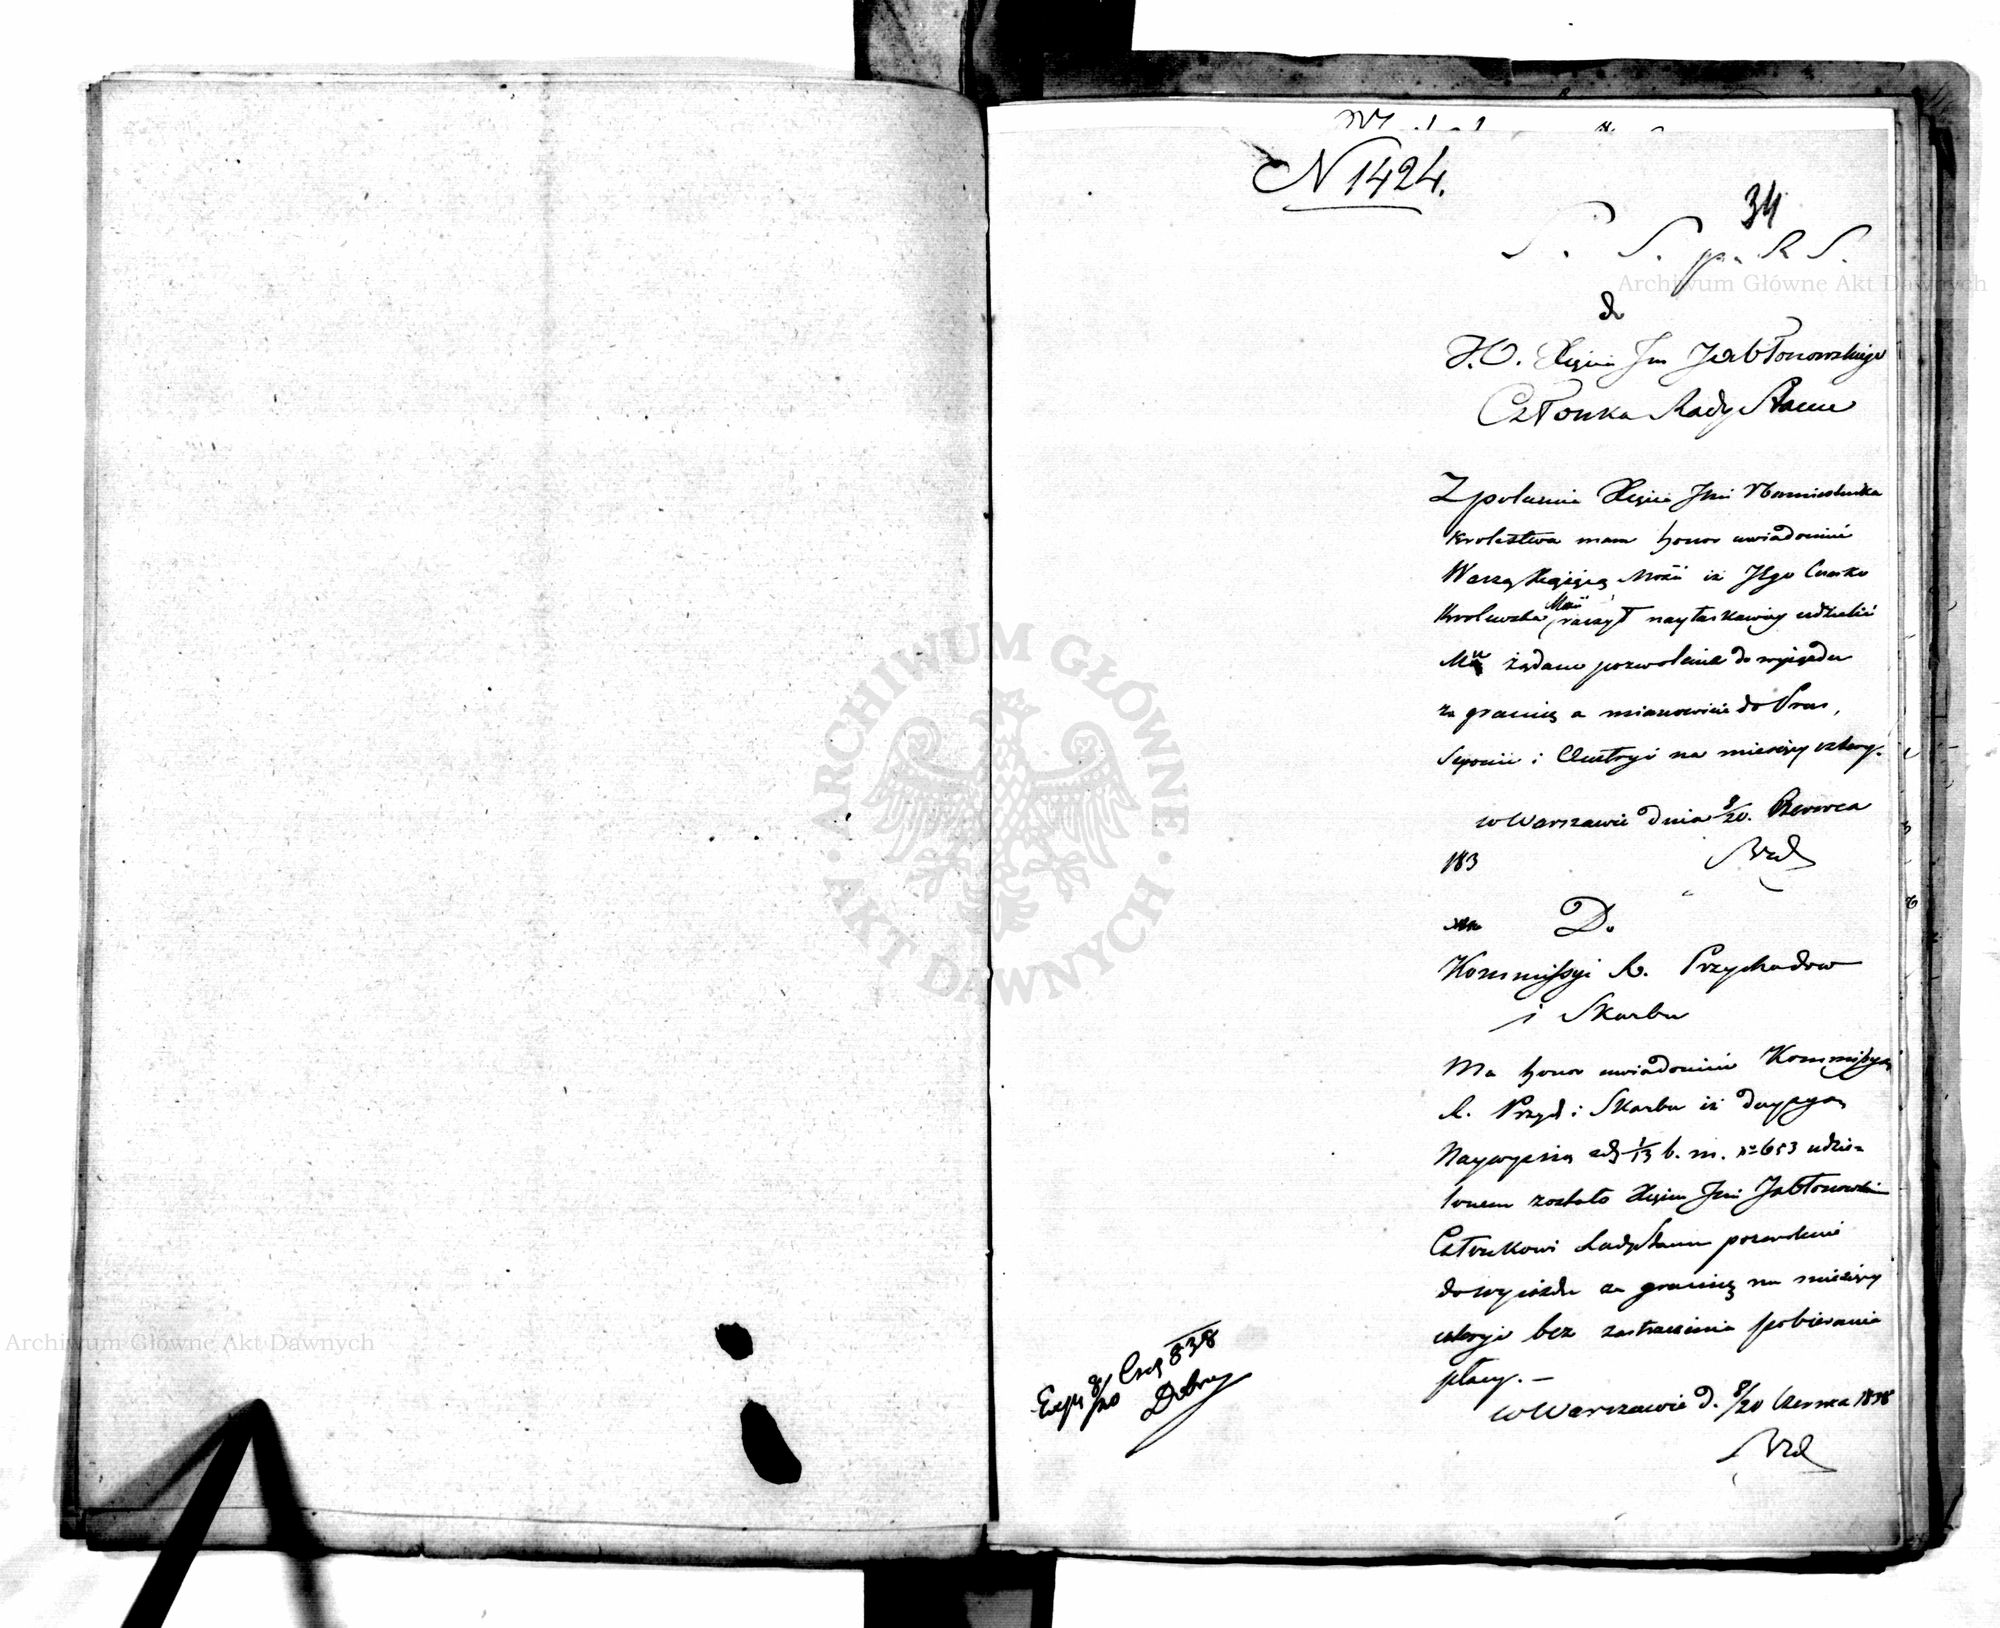 N 1424.
34
S. S. p. R S.
do
J.O. Xięcia Jm Jabłonowskiego
Członka Rady Stanu
Z polecenia Xięcia Jmci Namiestnika
Krolestwa mam honor uwiadomić
Waszą Xiążęcą Mość iż Jego Cesarsko
Krolewska Mość raczył nayłaskawiey udzielić
Mu żądane pozwolenie do wyjazdu
za granicę a mianowicie do Prus,
Saxonii i Austryi na miesięcy cztery.
w Warszawie dnia 8/20. Czerwca
183
D.
Kommissyi R. Przychodow
i Skarbu
Ma honor uwiadomić Kommissyą
R. Przych i Skarbu iż decyzyą
Naywyższą z d. 1/13 b. m. No 653 udzie-
lonem zostało Xięciu Jmci Jabłonowskiemu
Członkowi Rady Stanu pozwolenie
do wyjazdu za granicę na miesięcy
cztery bez zastrzeżenia pobierania
płacy. —
w Warszawie d. 8/20 Czerwca 1838
Exp. 8/20 Cze 838
ARCHIWUM GŁÓWNE
AKT DAWNYCH
Archiwum Główne Akt Dawnych
Archiwum Główne Akt Dawnych